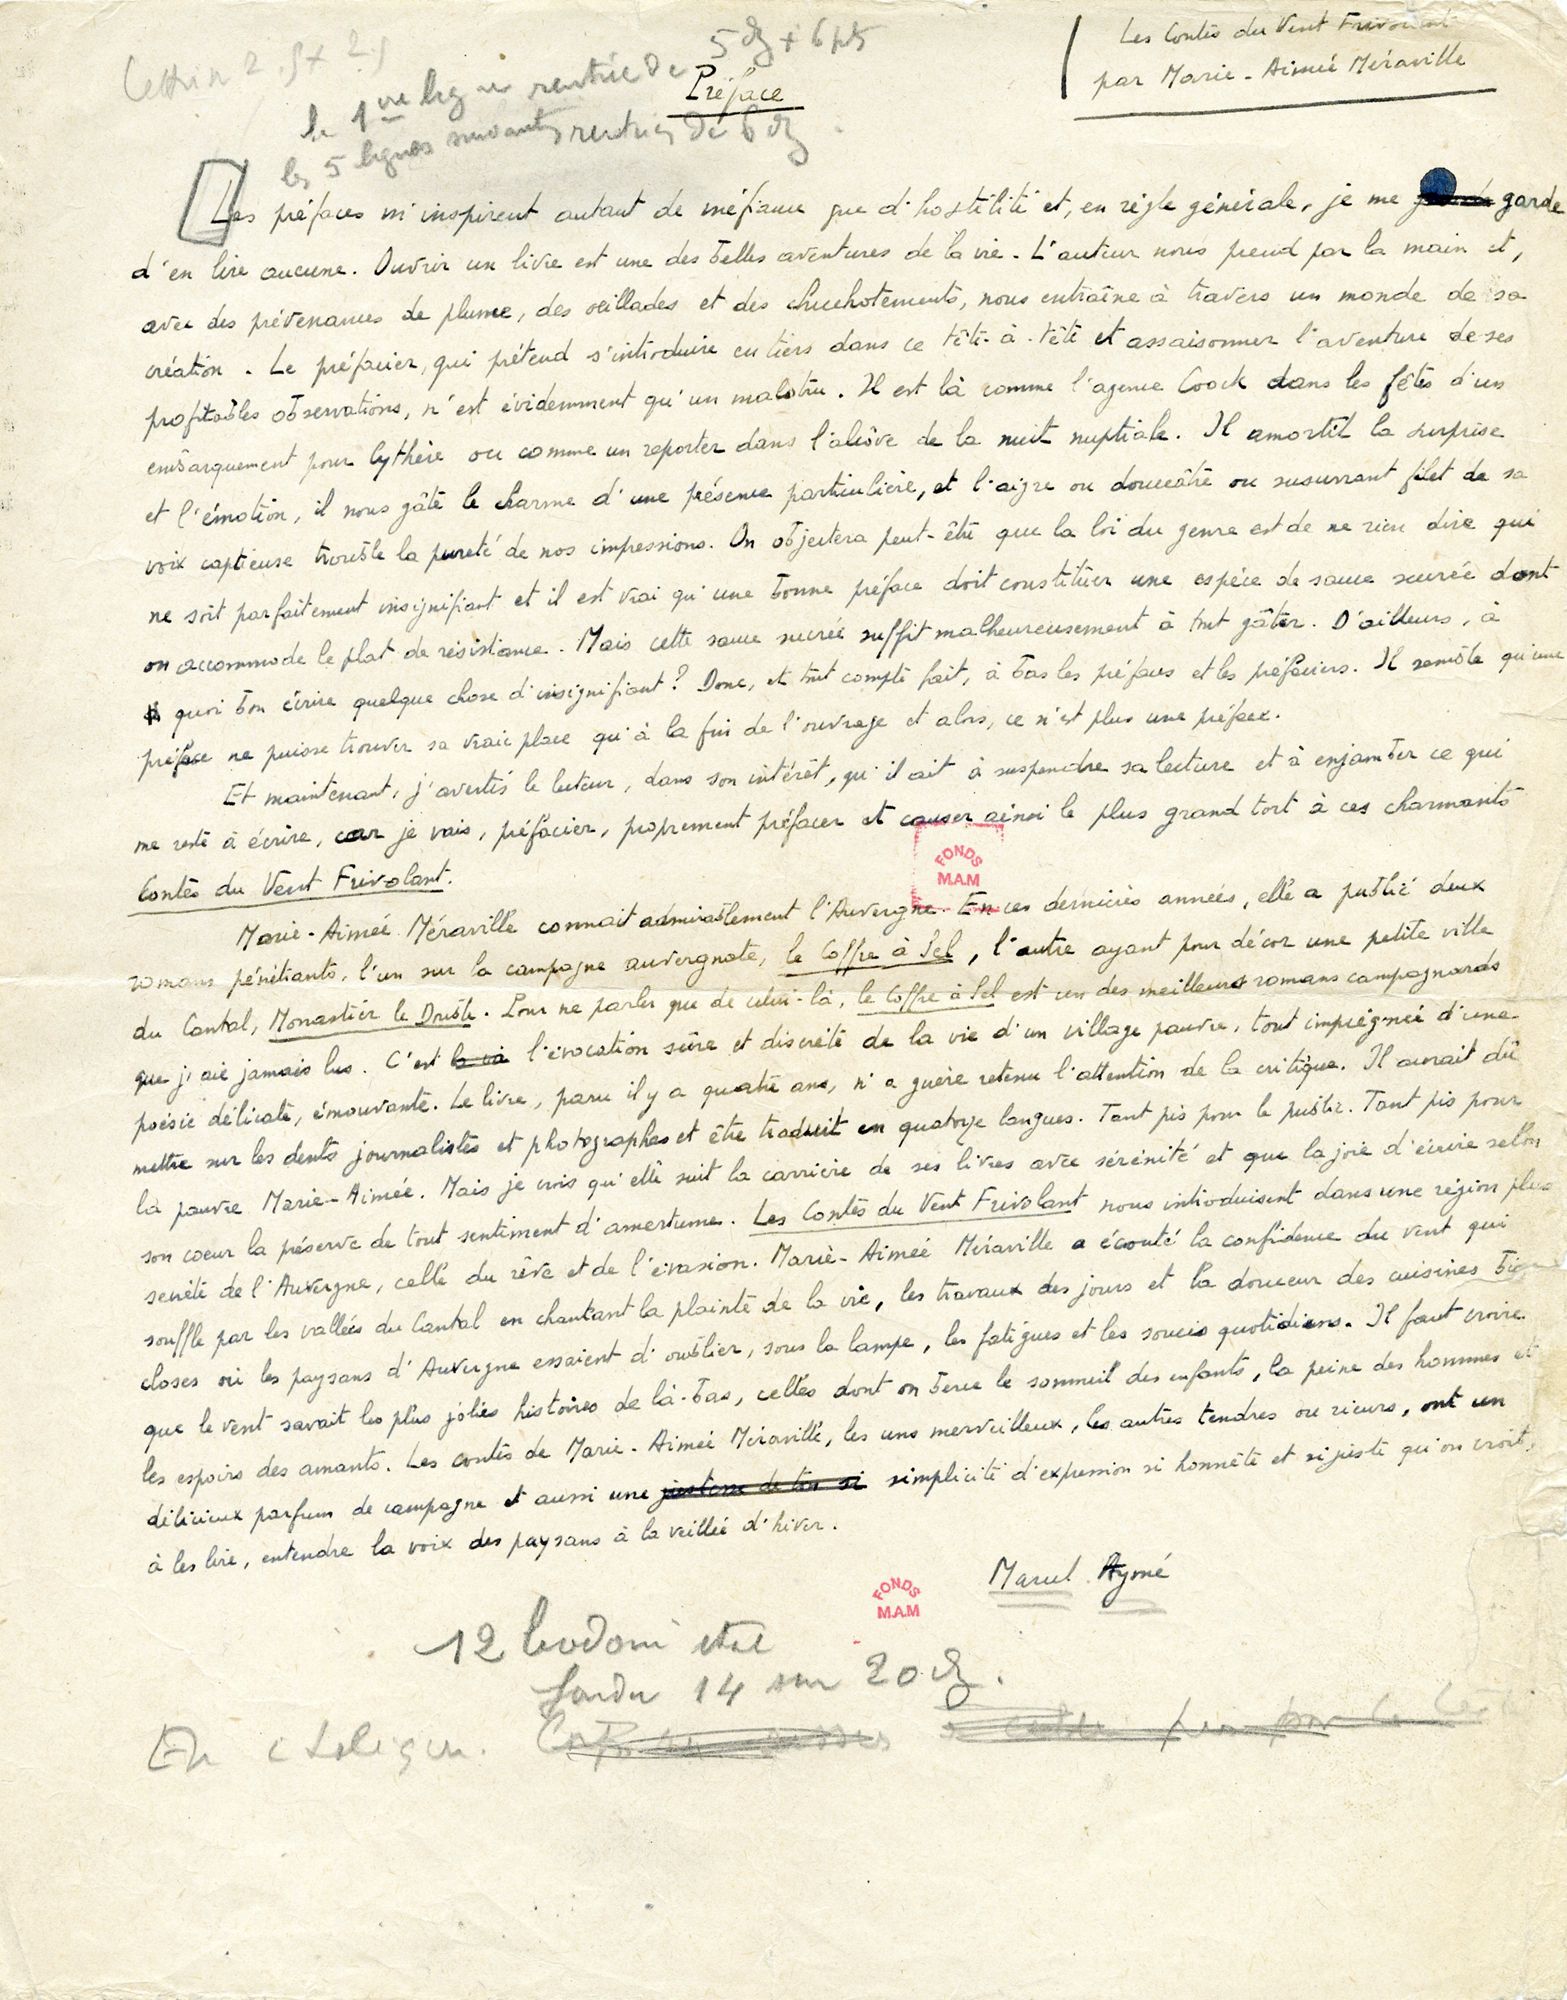 Les Contes du Vent Frivolant
par Marie-Aimée Méraville
5 + 6 pts
la 1ère ligne rentrée de
Préface
les 5 lignes suivantes rentrées de 6
Les préfaces m'inspirent autant de méfiance que d'hostilité et, en règle générale, je me garde
d'en lire aucune. Ouvrir un livre est une des belles aventures de la vie. L'auteur nous prend par la main et,
avec des prévenances de plume, des oeillades et des chuchotements, nous entraîne à travers un monde de sa
création. Le préfacier, qui prétend s'introduire en tiers dans ce tête-à-tête et assaisonner l'aventure de ses
profitables observations, n'est évidemment qu'un malotru. Il est là comme l'agence Coock dans les fêtes d'un
embarquement pour Cythère ou comme un reporter dans l'alcôve de la nuit nuptiale. Il amortit la surprise
et l'émotion, il nous gâte le charme d'une présence particulière, et l'aigre ou douceâtre ou susurrant filet de sa
voix captieuse trouble la pureté de nos impressions. On objectera peut-être que la loi du genre est de ne rien dire qui
ne soit parfaitement insignifiant et il est vrai qu'une bonne préface doit constituer une espèce de sauce sucrée dont
on accommode le plat de résistance. Mais cette sauce sucrée suffit malheureusement à tout gâter. D'ailleurs, à
quoi bon écrire quelque chose d'insignifiant ? Donc, et tout compte fait, à bas les préfaces et les préfaciers. Il semble qu'une
préface ne puisse trouver sa vraie place qu'à la fin de l'ouvrage et alors, ce n'est plus une préface.
Et maintenant, j'avertis le lecteur, dans son intérêt, qu'il ait à suspendre sa lecture et à enjamber ce qui
me reste à écrire, car je vais, préfacier, proprement préfacer et causer ainsi le plus grand tort à ces charmants
Contes du Vent Frivolant.
FONDS
M.A.M
Marie-Aimée Méraville connait admirablement l'Auvergne. En ces dernières années, elle a publié deux
romans pénétrants, l'un sur la campagne auvergnate, le Coffre à Sel, l'autre ayant pour décor une petite ville
du Cantal, Monastier le Double. Pour ne parler que de celui-là, le Coffre à Sel est un des meilleurs romans campagnards
que j'aie jamais lus. C'est la vi l'évocation sûre et discrète de la vie d'un village pauvre, tout imprégnée d'une
poésie délicate, émouvante. Le livre, paru il y a quatre ans, n'a guère retenu l'attention de la critique. Il aurait dû
mettre sur les dents journalistes et photographes et être traduit en quatorze langues. Tant pis pour le public. Tant pis pour
la pauvre Marie-Aimée. Mais je crois qu'elle suit la carrière de ses livres avec sérénité et que la joie d'écrire selon
son coeur la préserve de tout sentiment d'amertume. Les Contes du Vent Frivolant nous introduisent dans une région plus
secrète de l'Auvergne, celle du rêve et de l'évasion. Marie-Aimée Méraville a écouté la confidence du vent qui
souffle par les vallées du Cantal en chantant la plainte de la vie, les travaux des jours et la douceur des cuisines bien
closes où les paysans d'Auvergne essaient d'oublier, sous la lampe, les fatigues et les soucis quotidiens. Il faut croire
que le vent savait les plus jolies histoires de là-bas, celles dont on berce le sommeil des enfants, la peine des hommes et
les espoirs des amants. Les contes de Marie-Aimée Méraville, les uns merveilleux, les autres tendres ou rieurs, ont un
délicieux parfum de campagne et aussi une justesse de ton si simplicité d'expression si honnête et si juste qu'on croit,
à les lire, entendre la voix des paysans à la veillée d'hiver.
Marcel Aymé
FONDS
M.A.M
12 bodoni
fondu 14 sur 20
En italique.